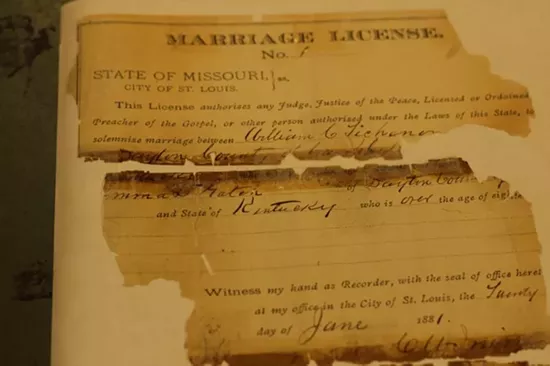 MARRIAGE LICENSE.
No. 1
STATE OF MISSOURI, } ss.
CITY OF ST. LOUIS.
This License authorizes any Judge, Justice of the Peace, Licensed or Ordained
Preacher of the Gospel, or other person authorized under the Laws of this State, to
solemnize marriage between William C Tichenor
Dayton County
of Dayton County
and State of Kentucky who is over the age of eight
Witness my hand as Recorder, with the seal of office heret
at my office in the City of St. Louis, the Twenty
day of June 1881.